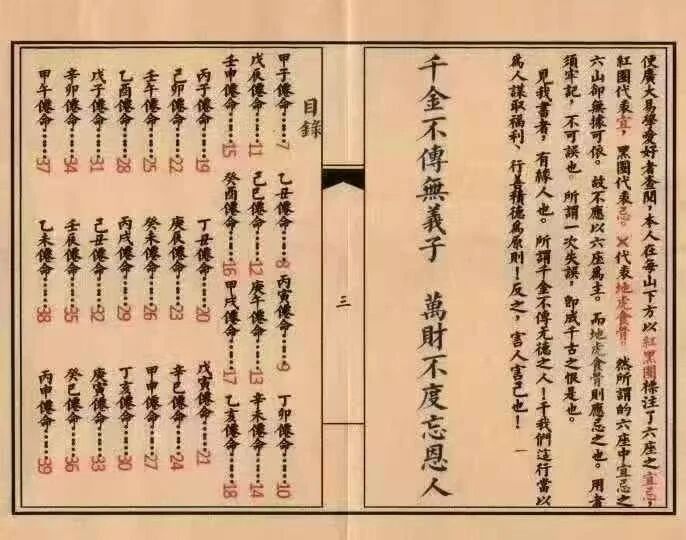 便廣大易學愛好者查閱,本人在每山下方以紅黑圈標注了六座之宜忌,
紅圈代表宜,黑圈代表忌。×代表地虎食骨。 然所謂的六座中宜忌之
六山卻無據可依。故不應以六座為主。而地虎食骨則應忌之也。用者
須牢記,不可誤也。所謂一次失誤,即成千古之恨是也。
見我書者,有緣人也。所謂千金不傳无德之人!干我們這行當以
為人謀取福利、行善積德為原則!反之,害人害己也! 一
千金不傳無義子 萬財不度忘恩人
三
目錄
甲子僊命……7 乙丑僊命……8 丙寅僊命……9 丁卯僊命……10
戊辰僊命……11 己巳僊命……12 庚午僊命……13 辛未僊命……14
壬申僊命……15 癸酉僊命……16 甲戌僊命……17 乙亥僊命……18
丙子僊命……19 丁丑僊命……20 戊寅僊命……21
己卯僊命……22 庚辰僊命……23 辛巳僊命……24
壬午僊命……25 癸未僊命……26 甲申僊命……27
乙酉僊命……28 丙戌僊命……29 丁亥僊命……30
戊子僊命……31 己丑僊命……32 庚寅僊命……33
辛卯僊命……34 壬辰僊命……35 癸巳僊命……36
甲午僊命……37 乙未僊命……38 丙申僊命……39